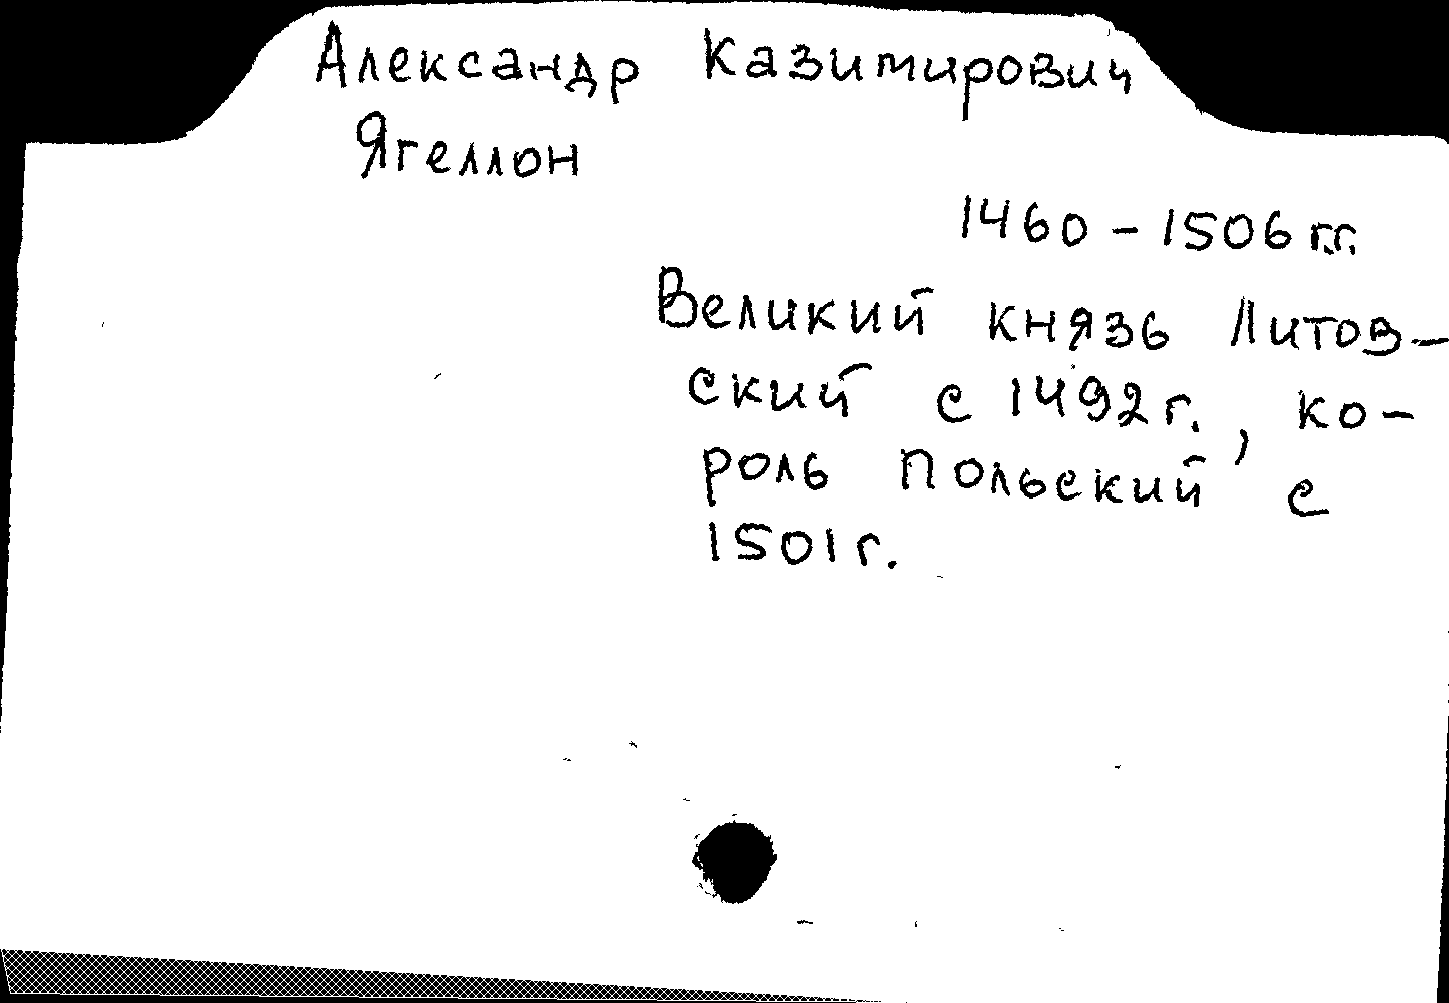 Александр Казимирович
Ягеллон
1460 - 1506 гг.
Великий князь Литов-
ский с 1492 г., ко-
роль Польский с
1501 г.